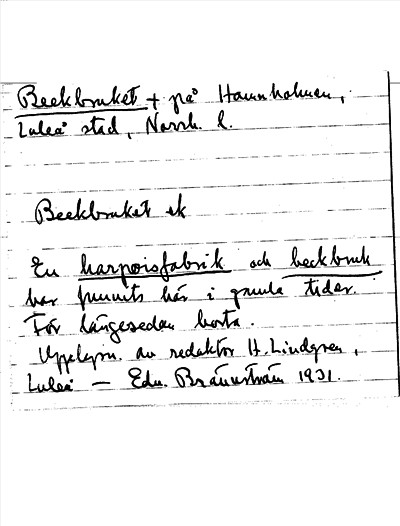 Beckbruket + på Hamnholmen,
Luleå stad, Norrb. l.
Beckbruket ek
En harpoisfabrik och beckbruk
har funnits här i gamla tider.
För längesedan borta.
Upplysn. av redaktör H. Lindgren,
Luleå — Edv. Brännström 1931.